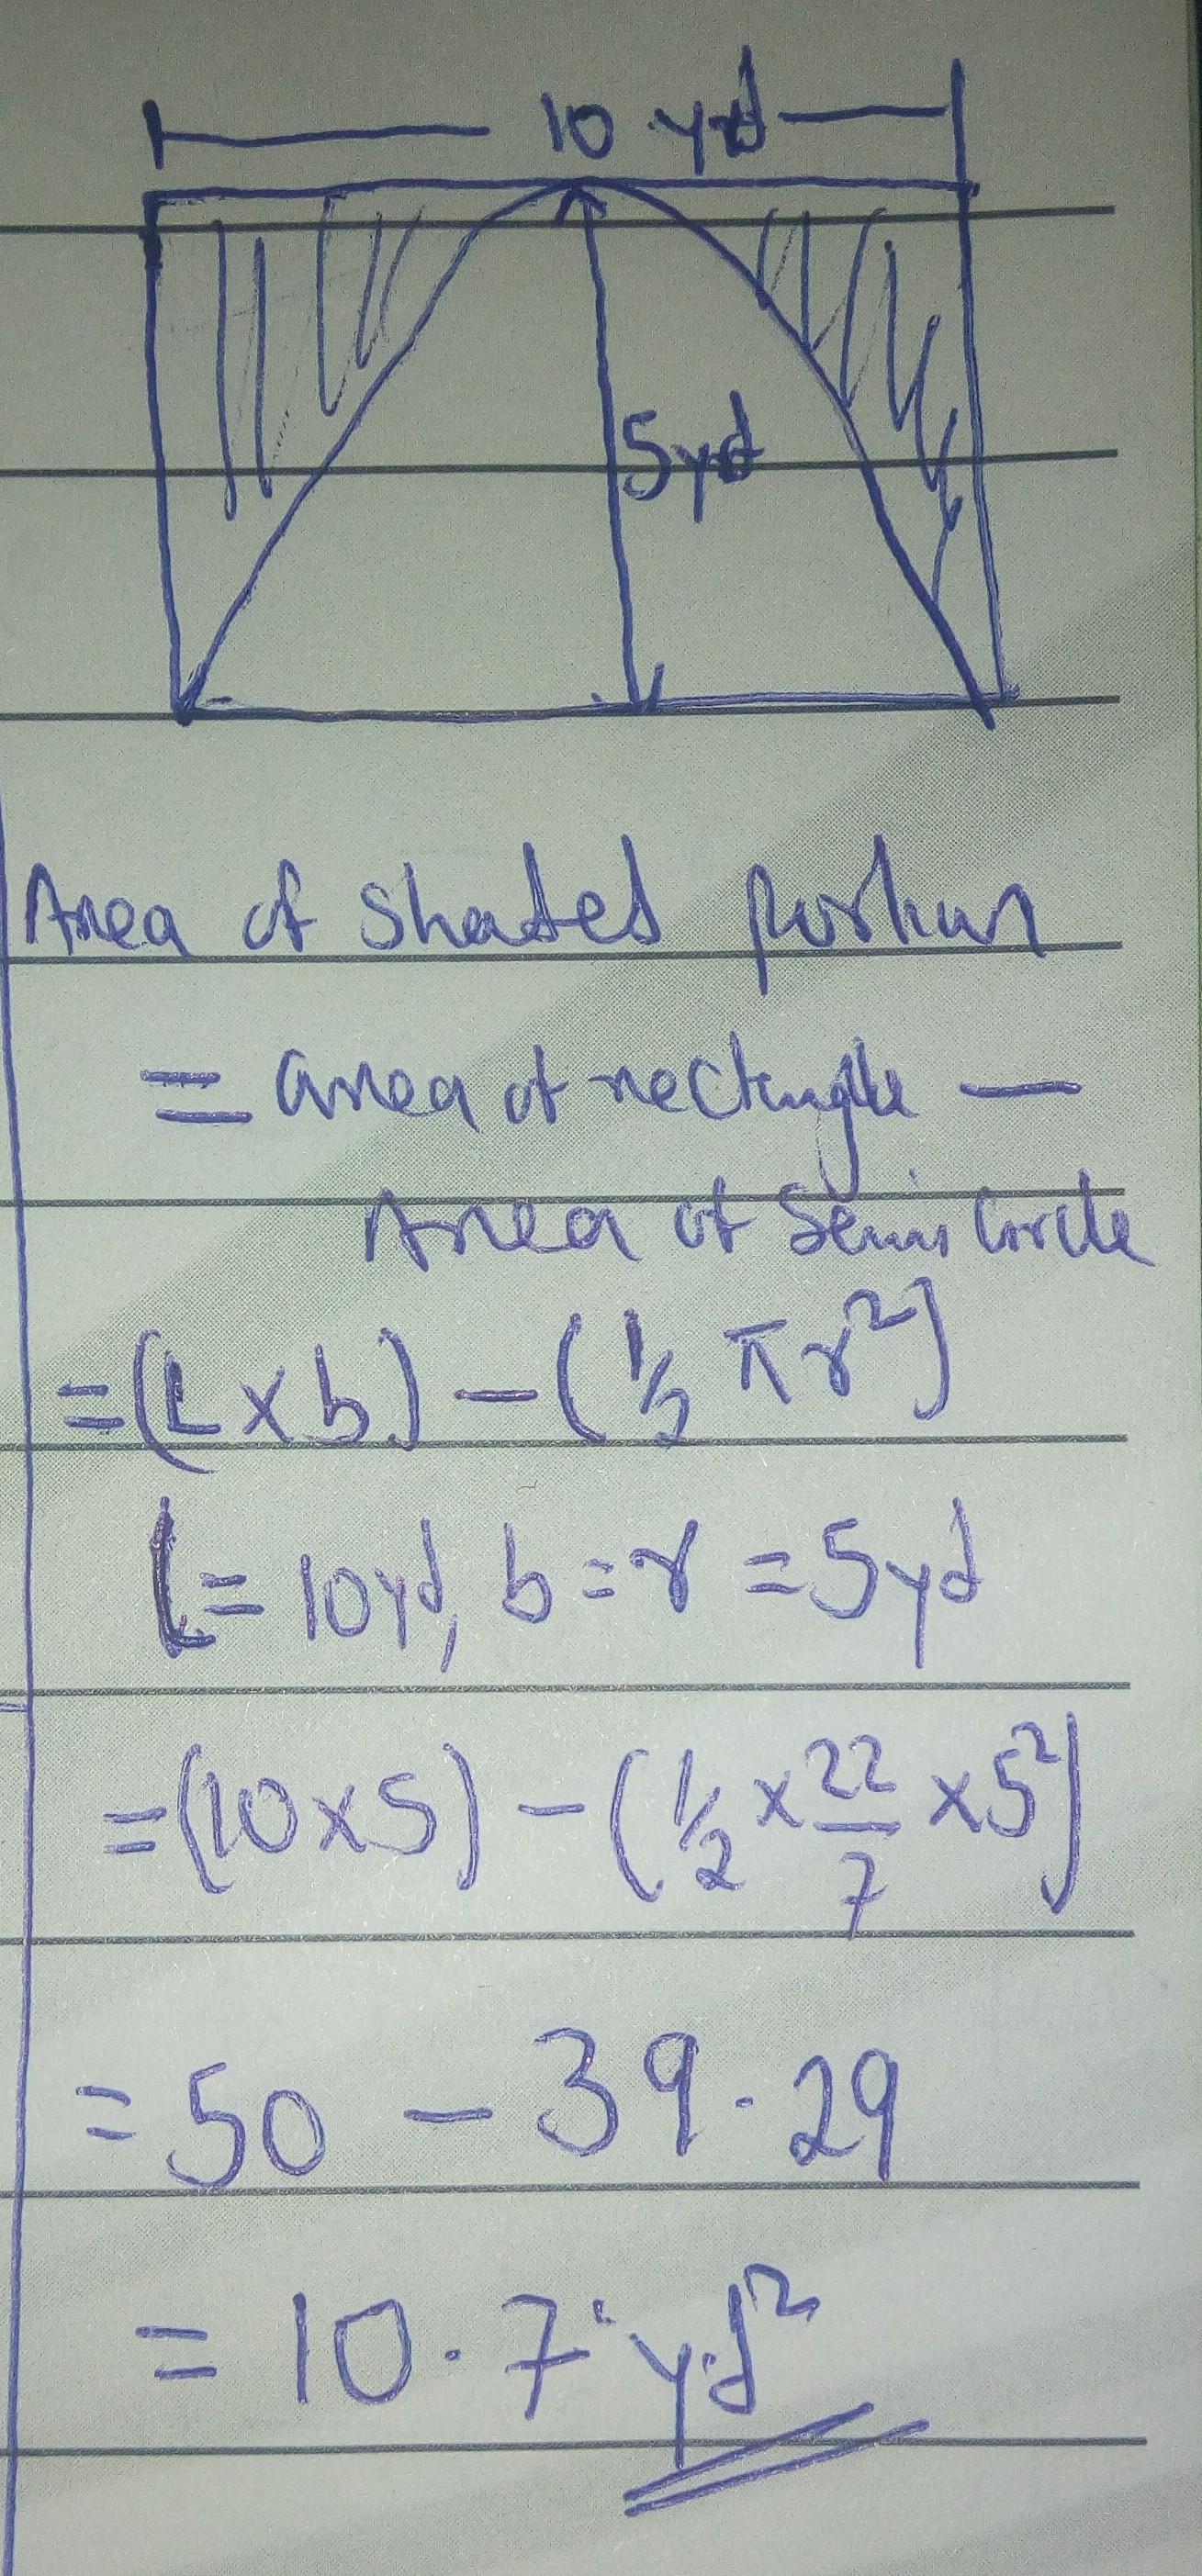 10 yd
5yd
Area of shaded portion
= area of rectangle -
Area of Semi Circle
=(L x b) - (1/2 πr²)
l = 10yd, b = r = 5yd
=(10x5) - (1/2 x 22/7 x 5²)
= 50 - 39.29
= 10.7 yd²